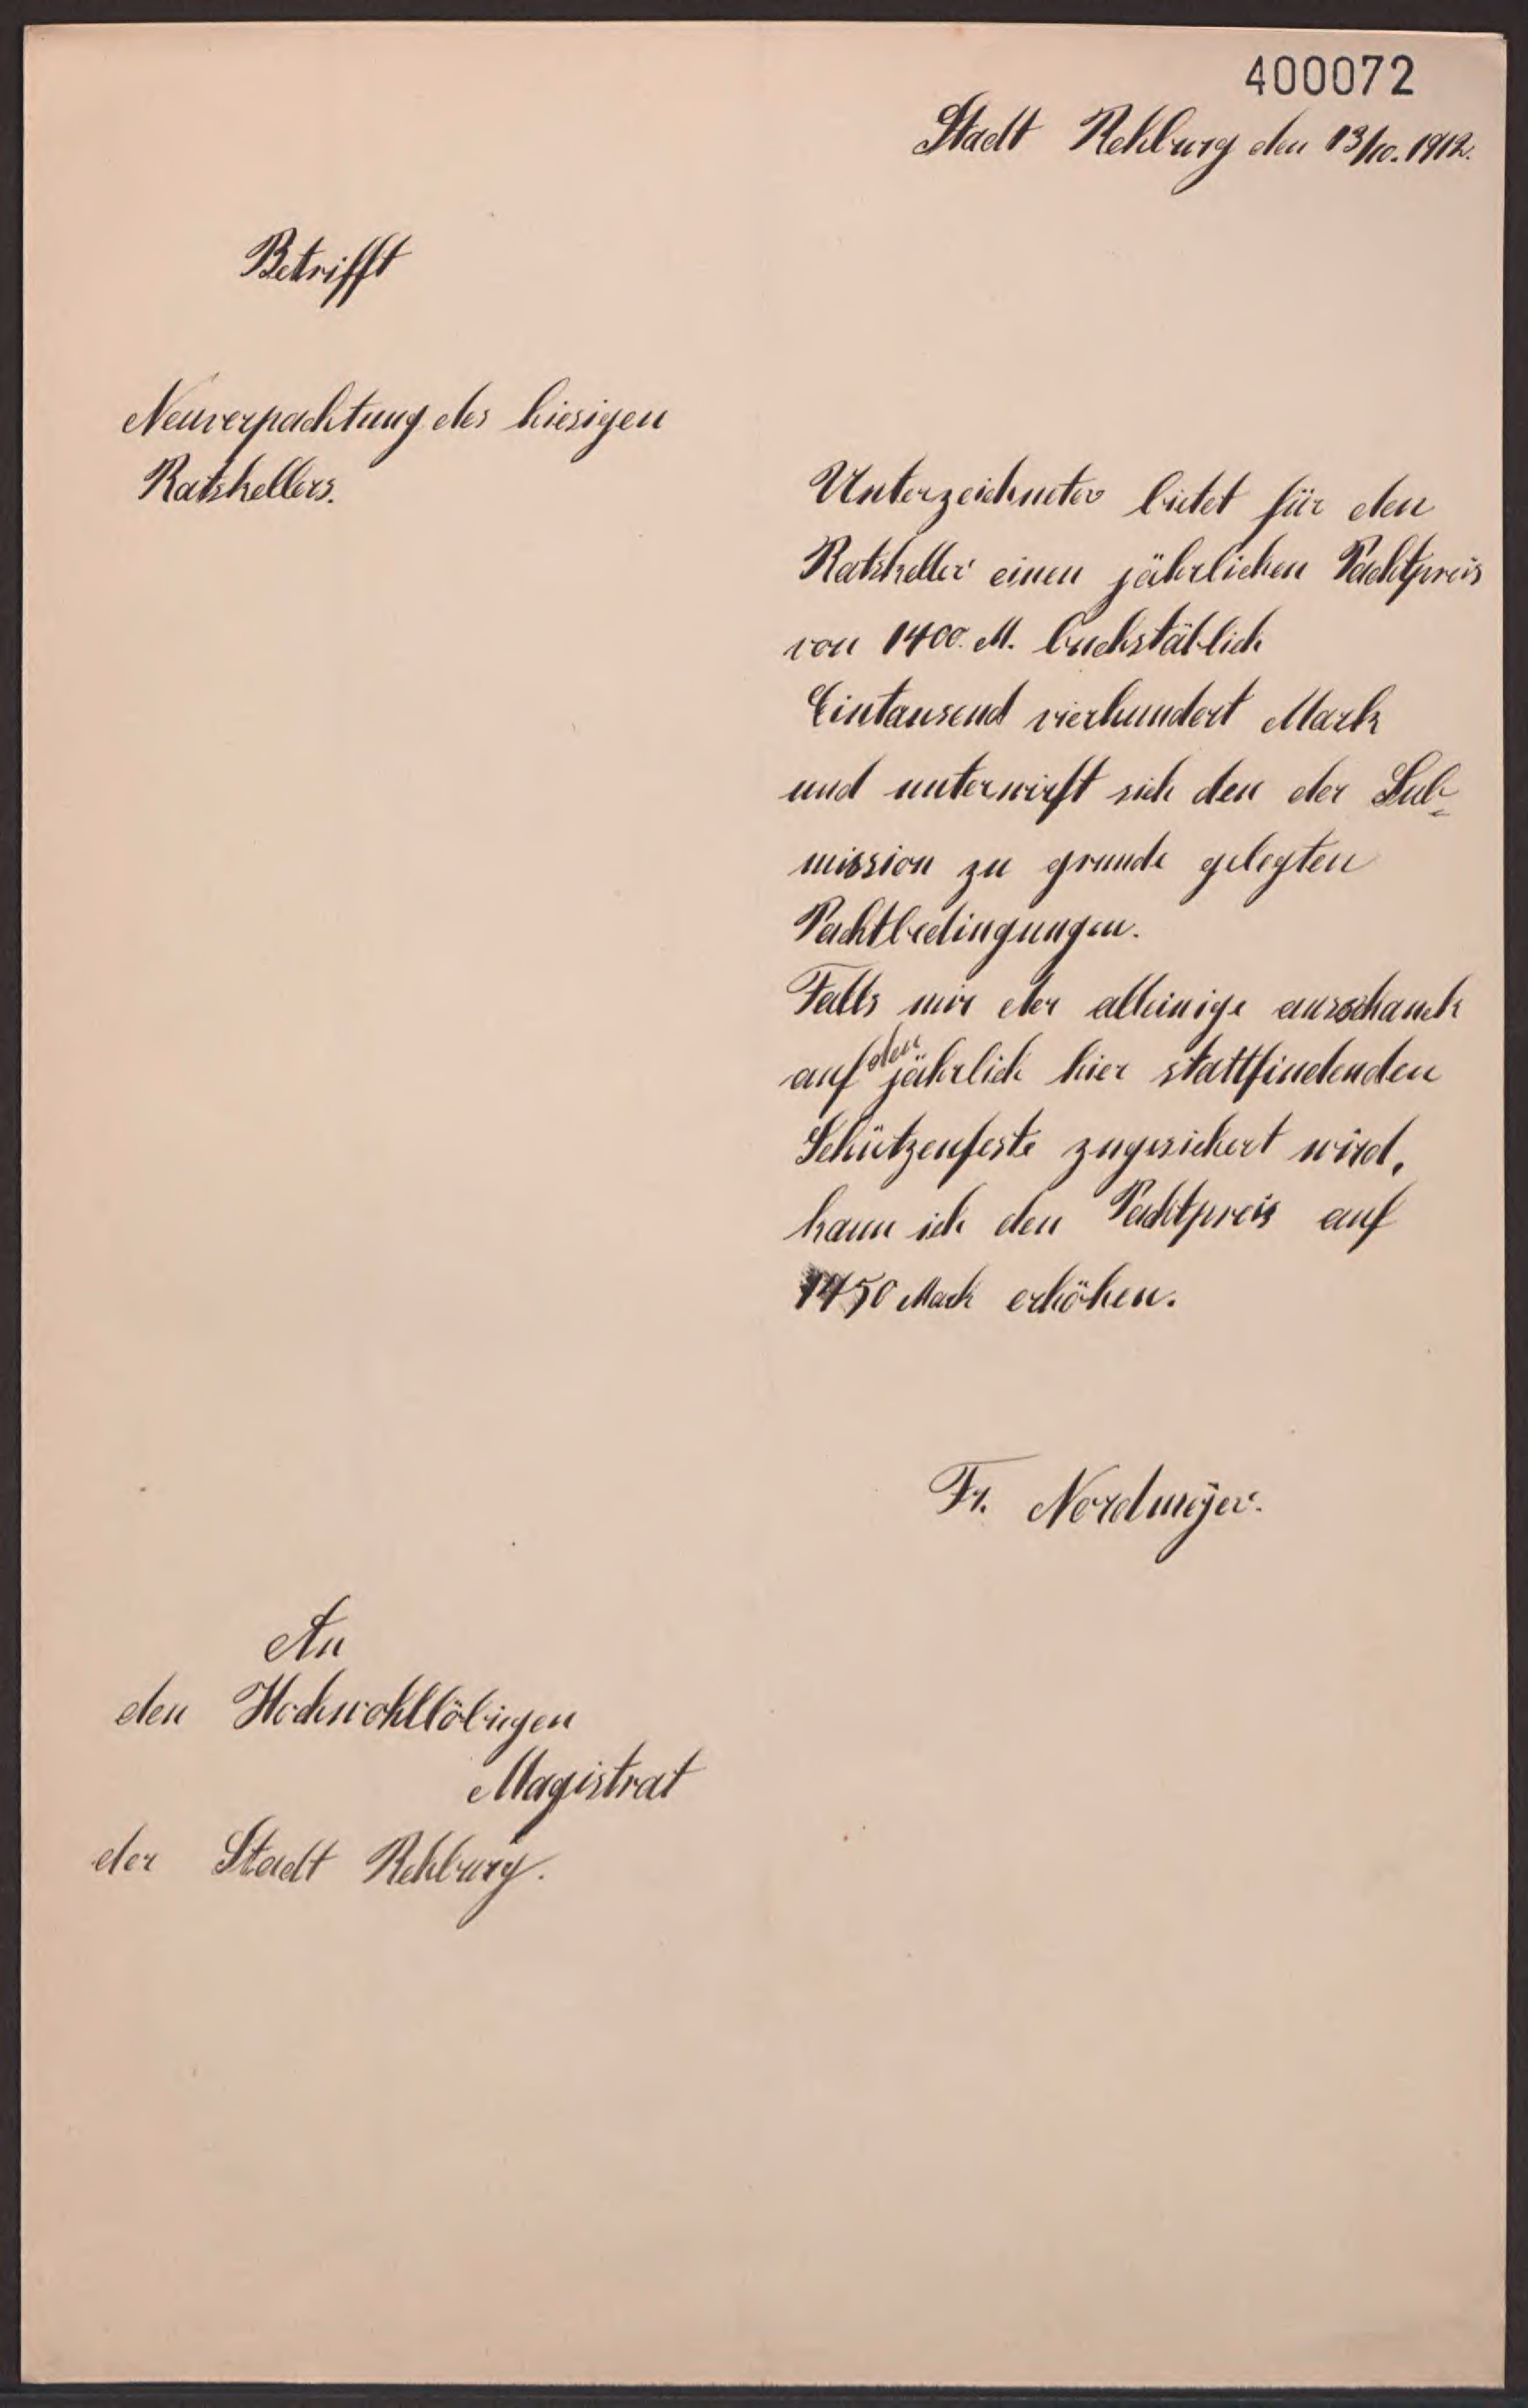 400072
Stadt Rehburg den 13/10. 1912.
Betrifft
Neuverpachtung des hiesigen
Ratskellers.
Unterzeichneter bietet für den
Ratskeller einen jährlichen Pachtpreis
von 1400. M. buchstäblich
Eintausend vierhundert Mark
und unterwirft sich den der Sub=
mission zu grunde gelegten
Pachtbedingungen.
Falls mir der alleinige ausschank
auf den jährlich hier stattfindenden
Schützenfeste zugesichert wird,
kann ich den Pachtpreis auf
1450 Mark erhöhen.
Fr. Nordmeyer.
An
den Hochwohllöbigen
Magistrat
der Stadt Rehburg.